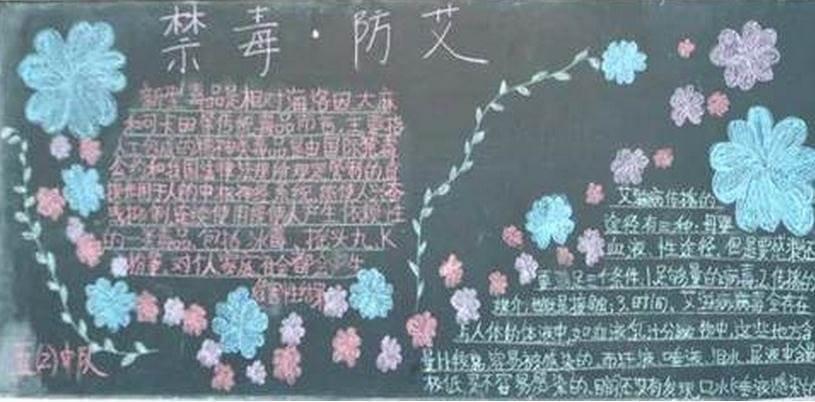 禁毒·防艾
新型毒品是相对海洛因大麻
可卡因等传统毒品而言,主要指
人工合成的精神类毒品,是由国际禁毒
公约和我国法律法规所规定管制的直
接作用于人的中枢神经系统,能使人兴奋
或抑制,连续使用能使人产生依赖性
的一类毒品,包括冰毒、摇头丸、K
粉等,对个人家庭社会都会产生
艾滋病传播的
途径有三种:母婴
血液、性途径,但是要感染还
要满足三个条件,1.足够量的病毒,2.传播的
媒介,也就是接触;3.时间、艾滋病病毒会存在
与人体的体液中,如血液乳汁分泌物中,这些地方含
量比较高,容易被感染的,而汗液、唾液、泪水、尿液中含
极低是不容易感染的,目前还没有发现口水(唾液)感染的
五(2)中队